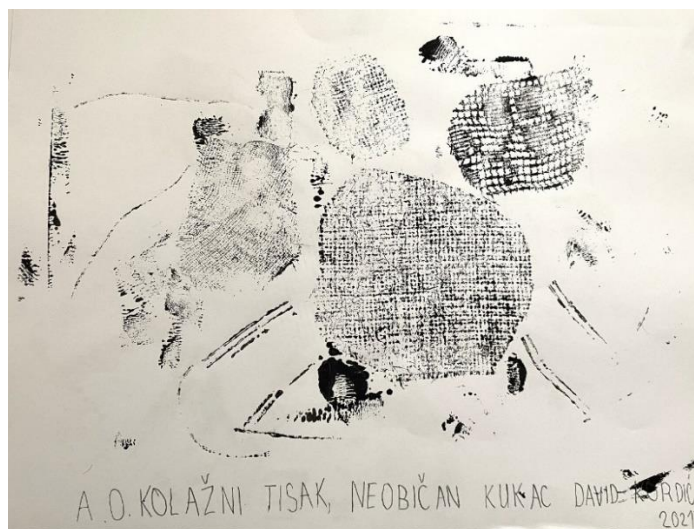 A.O. KOLAŽNI TISAK, NEOBIČAN KUKAC DAVID KORDIĆ
2021